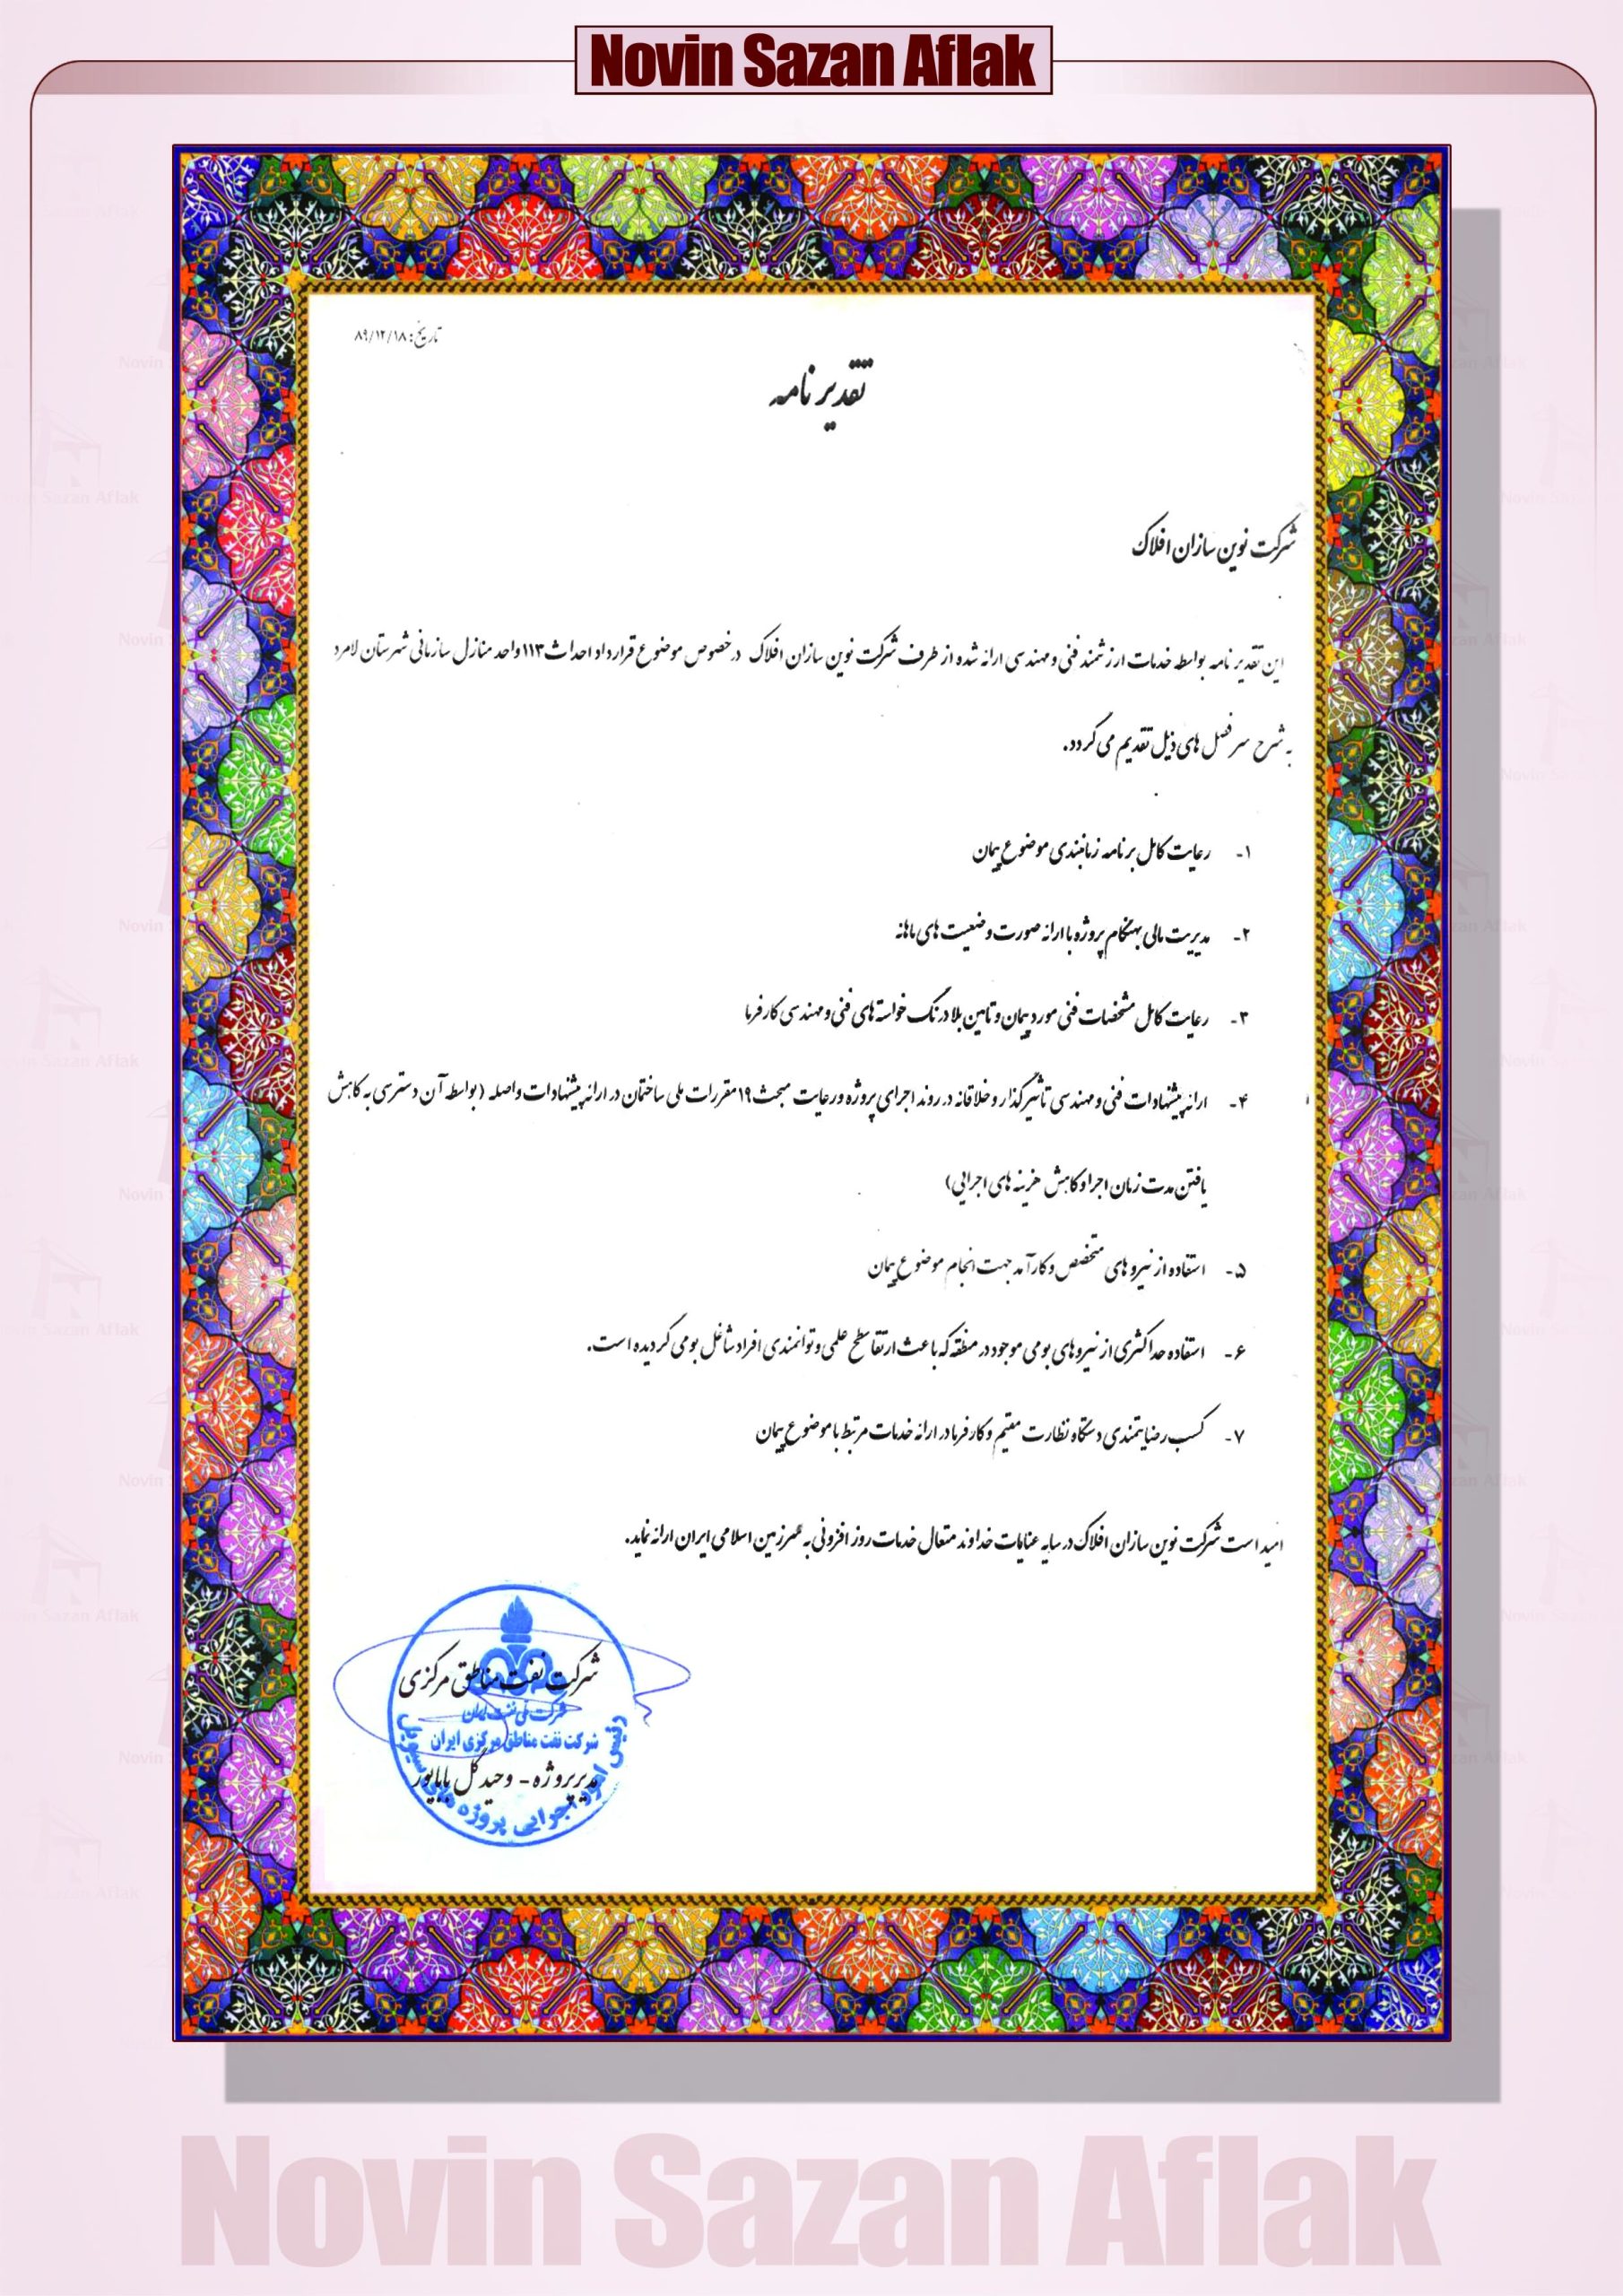 Novin Sazan Aflak
تاریخ: ۸۹/۱۲/۱۸
تقدیر نامه
شرکت نوین سازان افلاک
این تقدیر نامه بواسطه خدمات ارزشمند فنی و مهندسی ارائه شده از طرف شرکت نوین سازان افلاک در خصوص موضوع قرارداد احداث ۱۱۳ واحد منازل سازمانی شهرستان لامرد
به شرح سر فصل های ذیل تقدیم می گردد.
۱- رعایت کامل برنامه زمانبندی موضوع پیمان
۲- مدیریت مالی بهنگام پروژه با ارائه صورت وضعیت های ماهانه
۳- رعایت کامل مشخصات فنی مورد پیمان و تامین بلادرنگ خواسته های فنی و مهندسی کارفرما
۴- ارائه پیشنهادات فنی و مهندسی تأثیرگذار و خلاقانه در روند اجرای پروژه و رعایت مبحث ۱۹ مقررات ملی ساختمان در ارائه پیشنهادات واصله (بواسطه آن دسترسی به کاهش
یافتن مدت زمان اجرا و کاهش هزینه های اجرایی)
۵- استفاده از نیروهای متخصص و کارآمد جهت انجام موضوع پیمان
۶- استفاده حداکثری از نیروهای بومی موجود در منطقه که باعث ارتقا سطح علمی و توانمندی افراد شاغل بومی گردیده است.
۷- کسب رضایتمندی دستگاه نظارت مقیم و کارفرما در ارائه خدمات مرتبط با موضوع پیمان
امید است شرکت نوین سازان افلاک در سایه عنایات خداوند متعال خدمات روز افزونی به سرزمین اسلامی ایران ارائه نماید.
شرکت نفت مناطق مرکزی
شرکت ملی نفت ایران
شرکت نفت مناطق مرکزی ایران
مدیر پروژه - وحید گل باباپور
رئیس امور اجرایی پروژه های سیویل
Novin Sazan Aflak